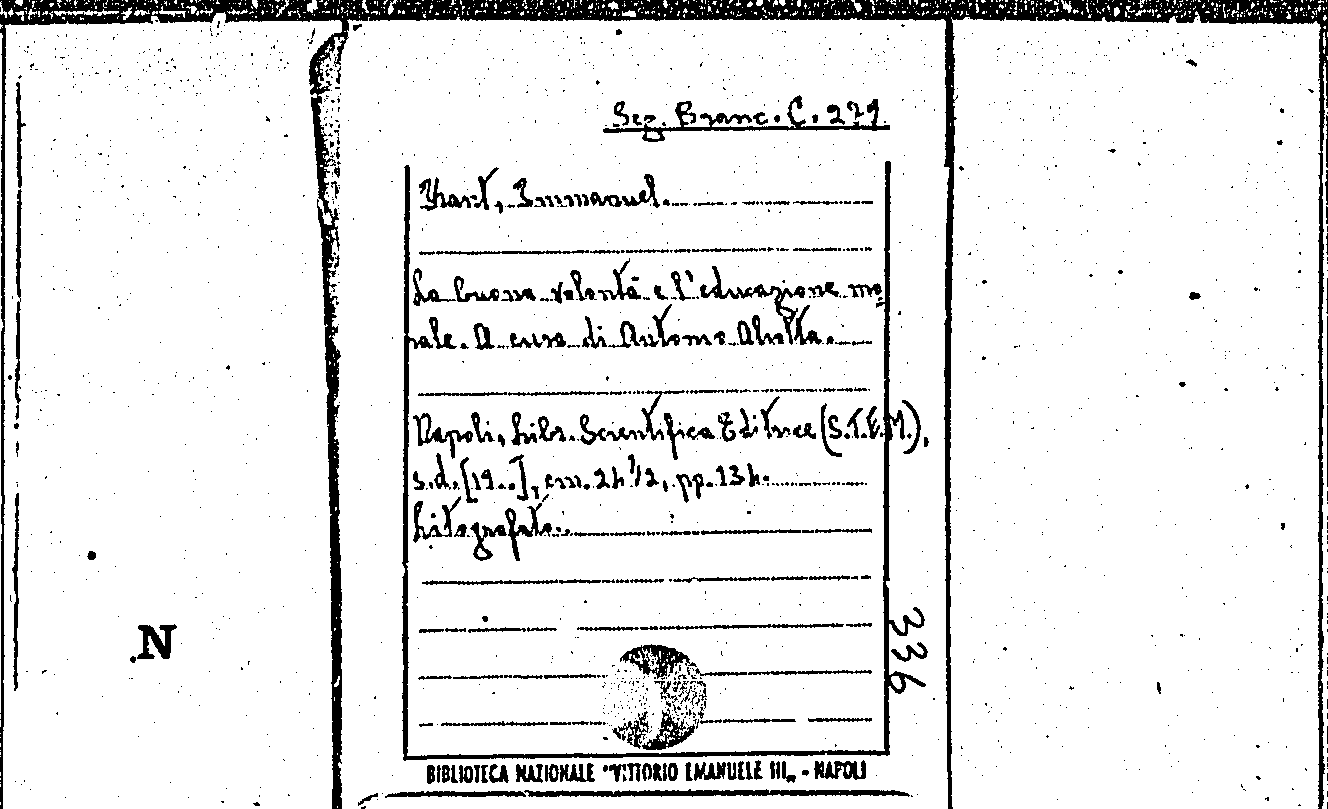 Seg. Branc. C. 279
Kant, Immanuel.
La buona volontà e l'educazione mo
rale. A cura di Antonio Aliotta.
Napoli, Libr. Scientifica Editrice (S.T.E.M.),
s.d. [19..], cm. 24 1/2, pp. 134.
Litografato.
336
.N
BIBLIOTECA NAZIONALE "VITTORIO EMANUELE III„ - NAPOLI